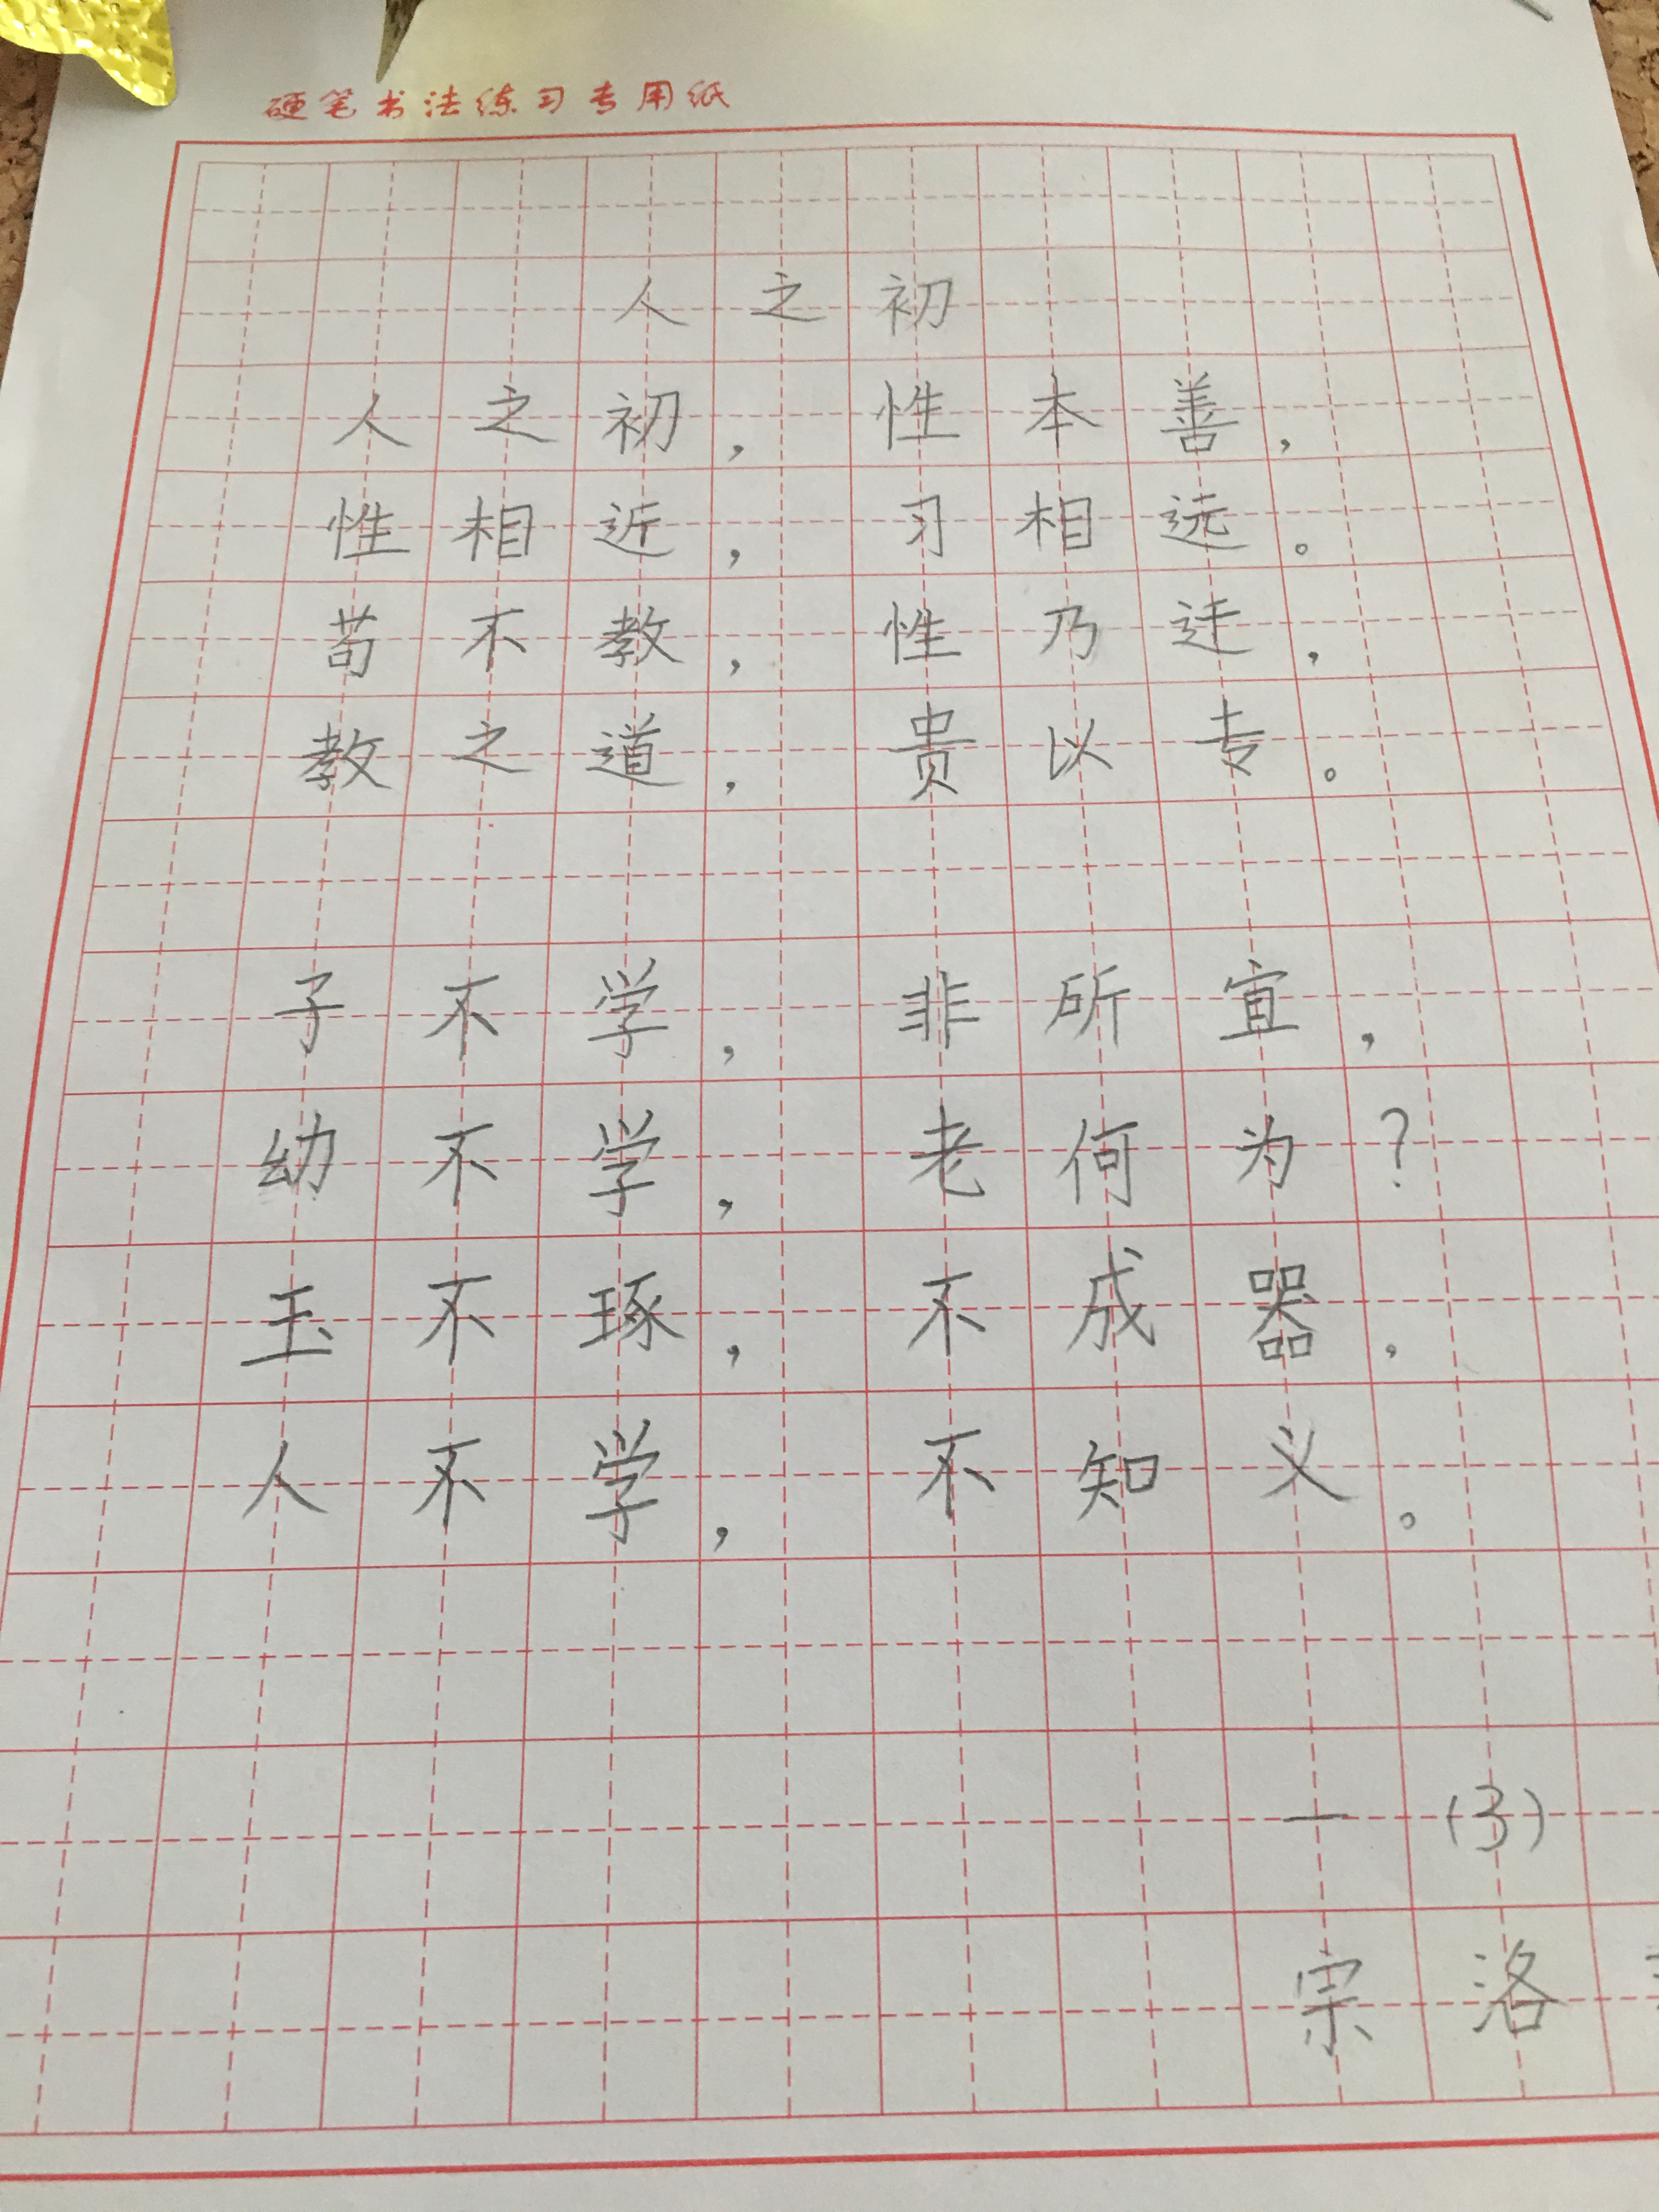 硬笔书法练习专用纸
人之初
人之初，性本善，
性相近，习相远。
苟不教，性乃迁，
教之道，贵以专。
子不学，非所宜，
幼不学，老何为？
玉不琢，不成器，
人不学，不知义。
一（3）
宗洛